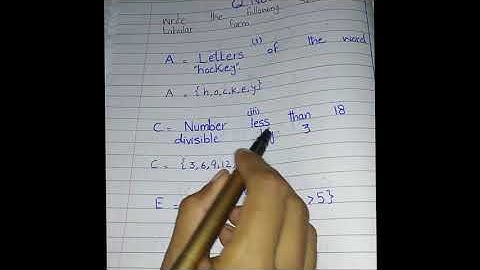 Write the following
tabular form
(i)
A = Letters of the word
"hockey".
A = {h,o,c,k,e,y}
(iii)
C = Number less than 18
divisible by 3
C = {3,6,9,12,
E = >5}